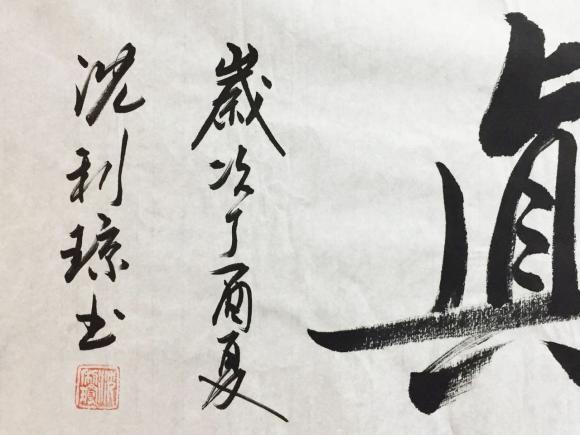 真
歲次丁酉夏
沈利琼书